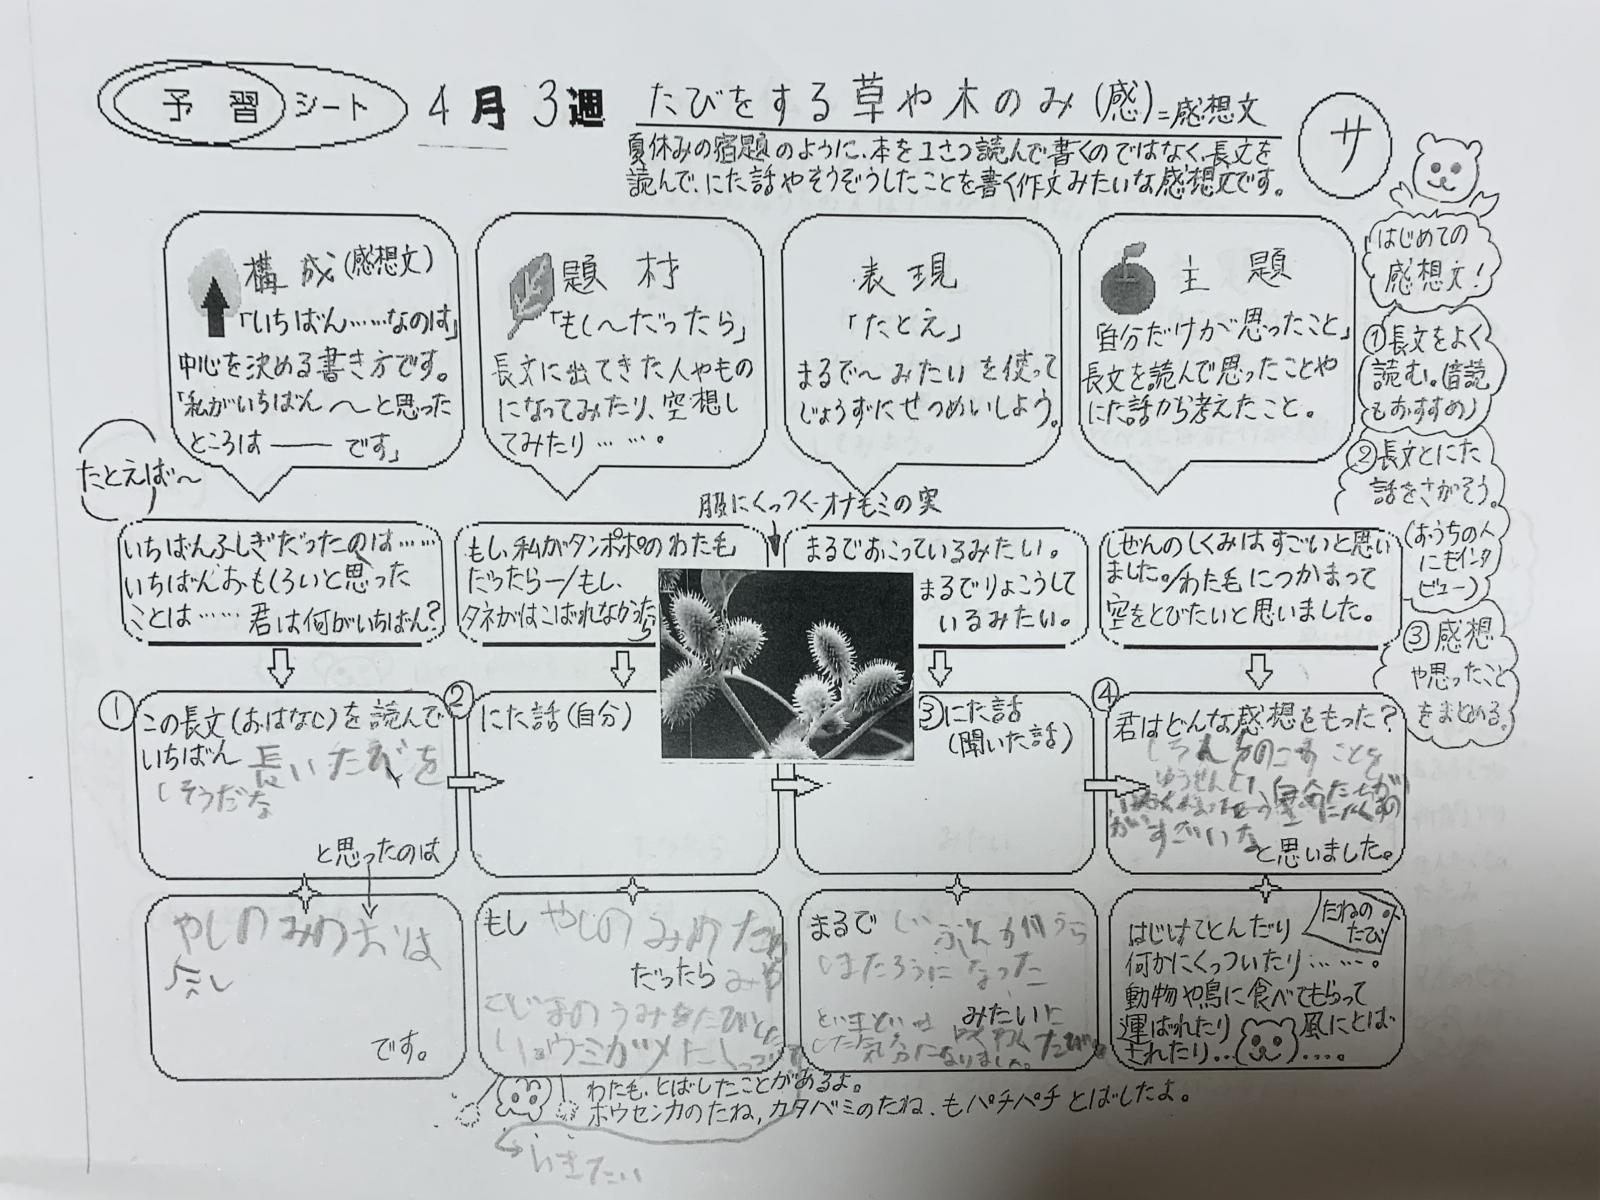 予習シート 4月3週 たびをする草や木のみ(感)=感想文
サ
夏休みの宿題のように、本を1さつ読んで書くのではなく、長文を
読んで、にた話やそうぞうしたことを書く作文みたいな感想文です。
構成(感想文)
「いちばん……なのは」
中心を決める書き方です。
「私がいちばん〜と思った
ところは―― です」
題材
「もし〜だったら」
長文に出てきた人やもの
になってみたり、空想し
てみたり……。
表現
「たとえ」
まるで〜みたいを使って
じょうずにせつめいしよう。
主題
「自分だけが思ったこと」
長文を読んで思ったことや
にた話から考えたこと。
はじめての
感想文!
①長文をよく
読む。(音読
もおすすめ)
②長文とにた
話をさがそう。
(おうちの人
にもインタ
ビュー)
③感想
や思ったこと
をまとめる。
たとえば〜
いちばんふしぎだったのは……
いちばんおもしろいと思った
ことは……君は何がいちばん?
もし、私がタンポポのわた毛
だったら―/もし、
タネがはこばれなかったら
服にくっつく・オナモミの実
まるでおこっているみたい。
まるでりょこうして
いるみたい。
しぜんのしくみはすごいと思い
ました。/わた毛につかまって
空をとびたいと思いました。
①この長文(おはなし)を読んで
いちばん 長いたびを
しそうだな
と思ったのは
やしのみのおはな
し
です。
②にた話(自分)
もし やしのみのたね
だったら みや
こじまのうみをたびした
い。ウミガメたし
いきたい
③にた話
(聞いた話)
まるで じぶんがうら
しまたろうになった
みたいに
した気分になりました。
④君はどんな感想をもった?
すごいな
と思いました。
たねの
たび
はじけてとんだり
何かにくっついたり……。
動物や鳥に食べてもらって
運ばれたり 風にとば
されたり‥ ….。
わた毛、とばしたことがあるよ。
ホウセンカのたね,カタバミのたね、もパチパチとばしたよ。